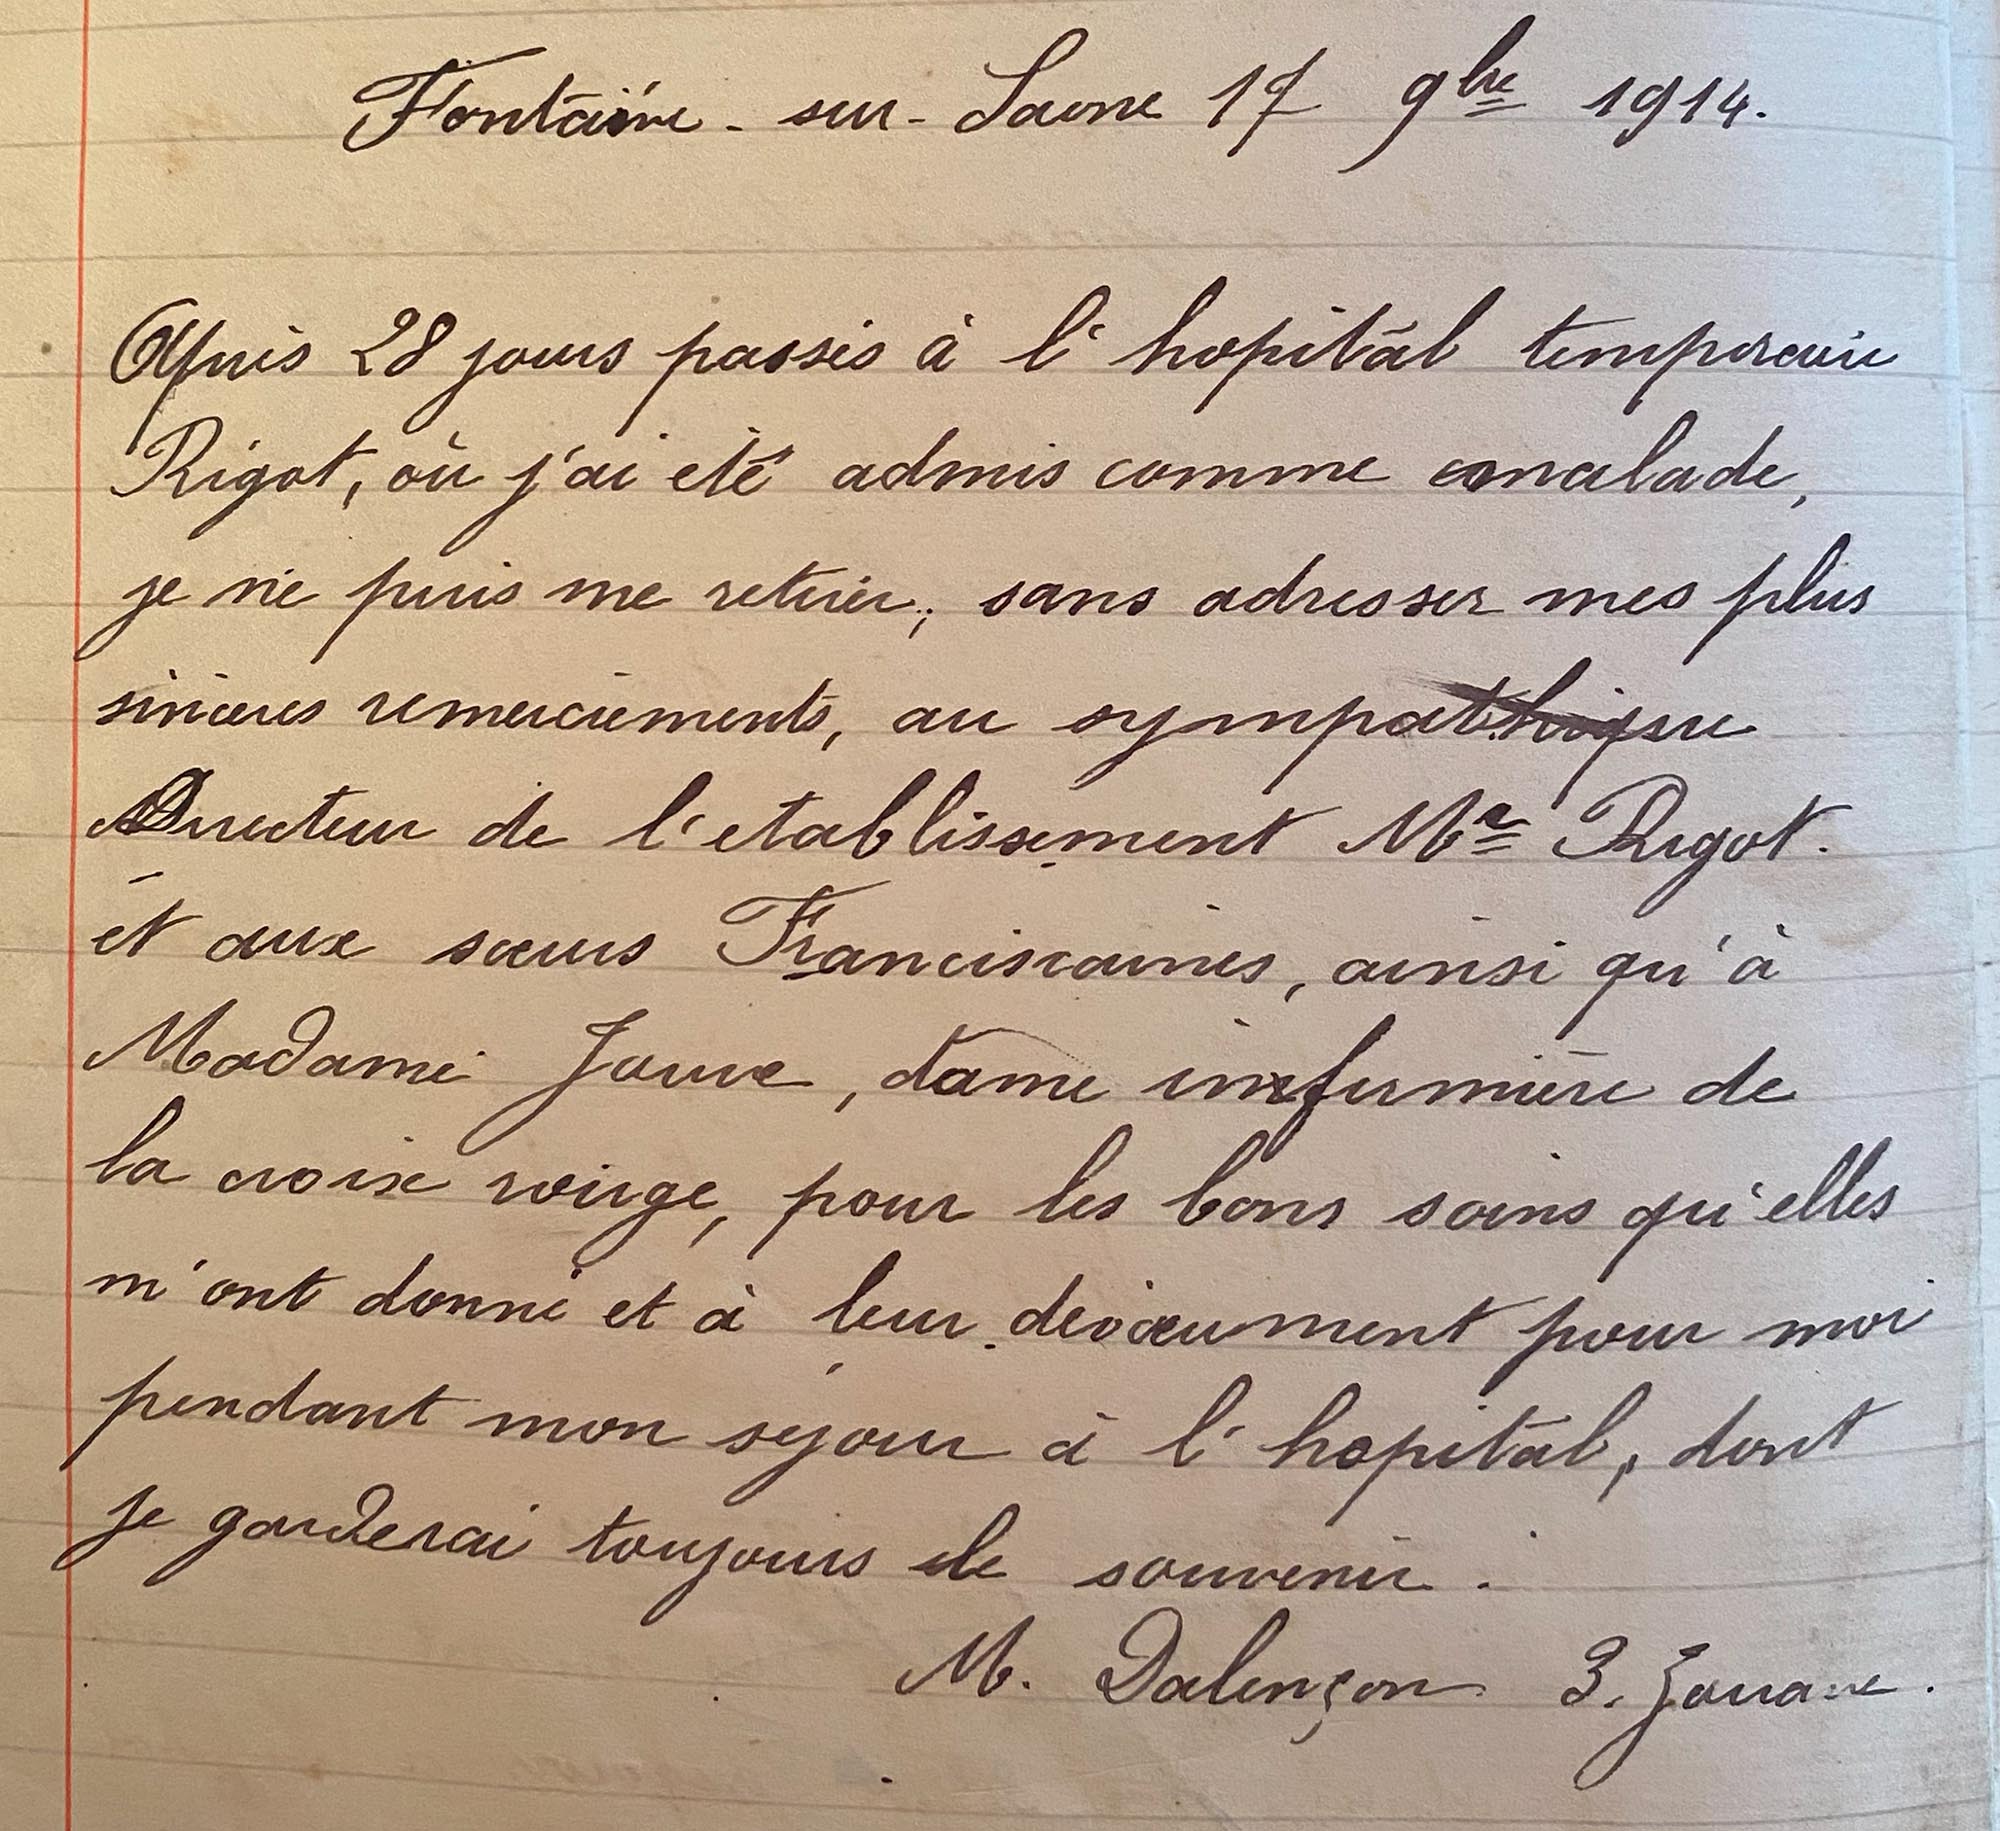 Fontaine - sur - Saone 17 9bre 1914.
Après 28 jours passés à l'hopital temporaire
Rigot, où j'ai eté admis comme malade,
je ne puis me retirer, sans adresser mes plus
sincères remerciements, au sympathique
Directeur de l'etablissement Mr Rigot.
et aux sœurs Franciscaines, ainsi qu'à
Madame Jouve, dame infirmière de
la croix rouge, pour les bons soins qu'elles
m'ont donné et à leur devoeument pour moi
pendant mon sejour à l'hopital, dont
je garderai toujours le souvenir.
M. Dalençon 3. Zouave.